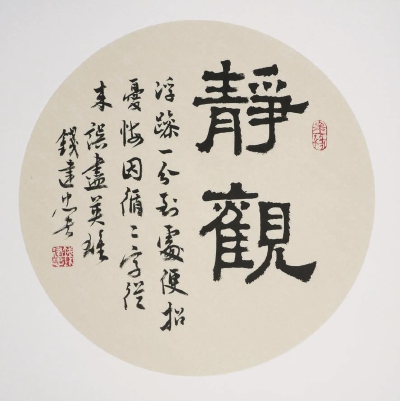 靜觀
浮躁一分到處便招
憂悔因循二字從
来誤盡英雄
錢建忠書